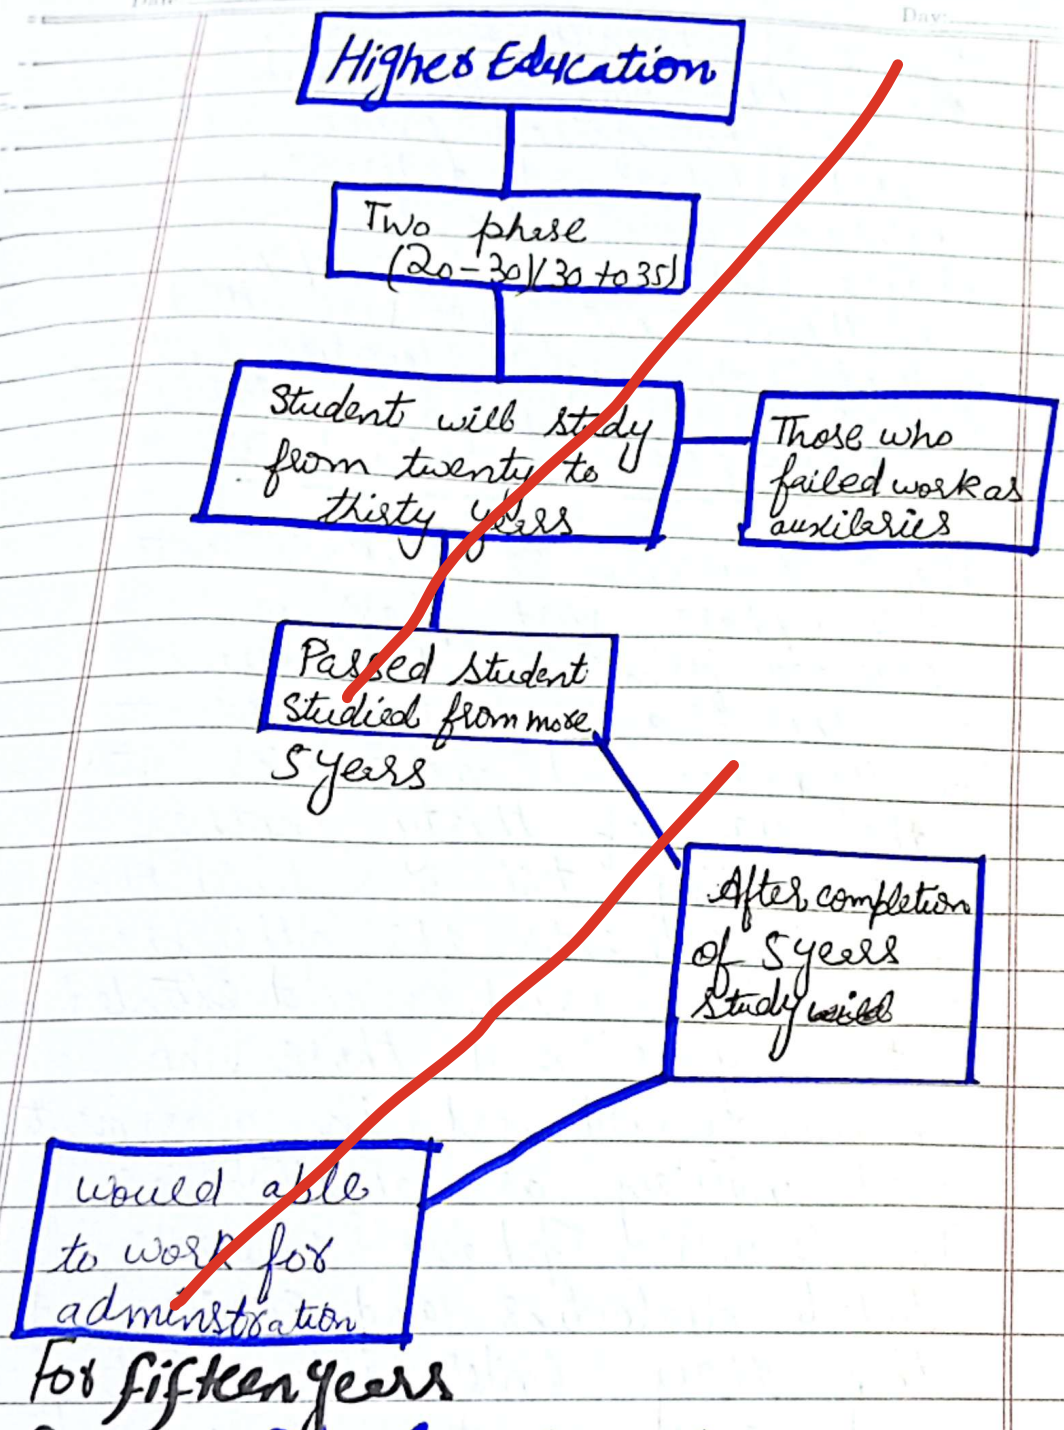 Day:
Higher Education
Two phase
(20-30)(30 to 35)
Student will study
from twenty to
thirty years
Those who
failed work as
auxilaries
Passed student
studied from more
5 years
After completion
of 5 years
study
would able
to work for
adminstration
For fifteen years